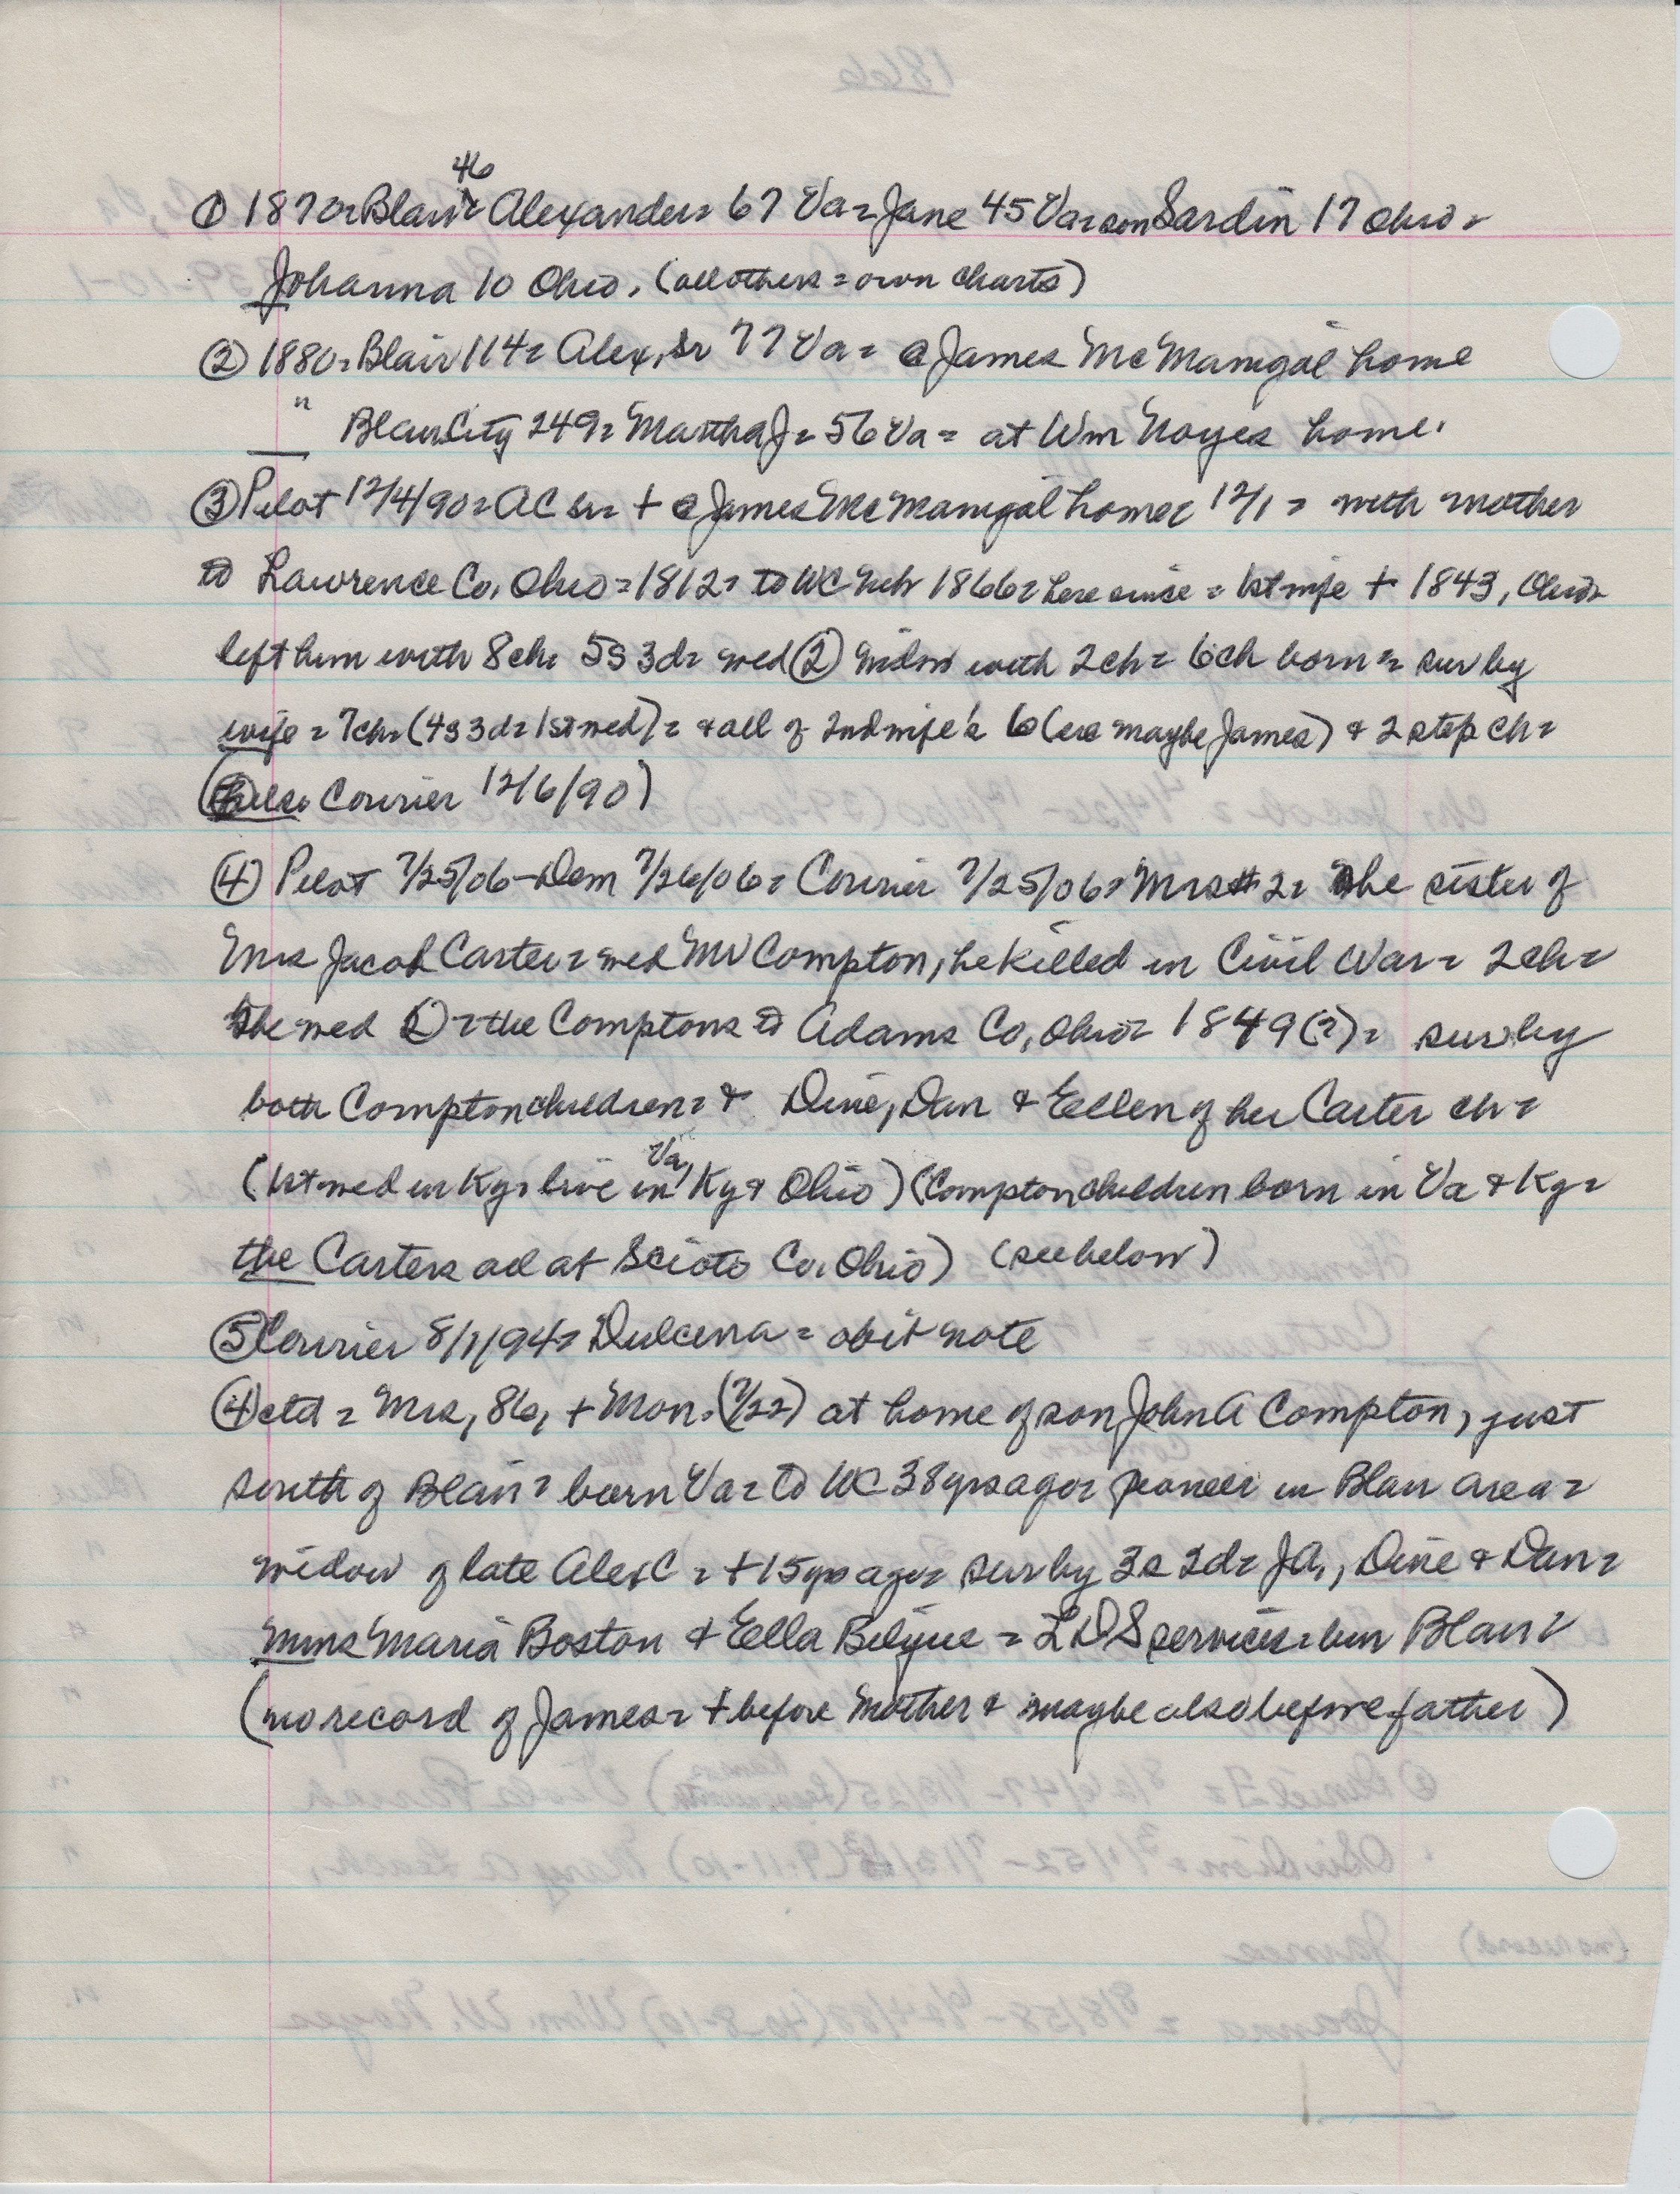 46
① 1870=Blair Alexander= 67 Va= Jane 45 Va= son Sardin 17 Ohio=
Johanna 10 Ohio. (all others = own charts)
② 1880= Blair 114= Alex, Sr 77 Va= @ James McManigal home
" Blair City 249= Martha J= 56 Va= at Wm Noyes home.
③ Pilot 12/4/90= AC Sr= + @ James McManigal home= 12/1 = with mother
to Lawrence Co, Ohio=1812= to WC 1866= here since = 1st wife + 1843, Ohio=
left him with 8 ch= 5s 3d= wed ② widow with 2 ch= 6 ch born = sur by
wife = 7 ch= (4s 3d= 1st wed)= & all of 2nd wife's 6 (exc maybe James) & 2 step ch=
(also Courier 12/6/90)
④ Pilot 7/25/06-Dem 7/26/06= Courier 7/25/06= Mrs #2= She sister of
Mrs Jacob Carter= wed Mr Compton, he killed in Civil War= 2 ch=
She wed ②= the Comptons to Adams Co, Ohio= 1849(?)= sur by
both Compton children= & Dine, Dan & Ellen of her Carter ch=
(1st wed in Ky= live in Va, Ky & Ohio) (Compton children born in Va & Ky=
the Carters all at Scioto Co, Ohio) (see below)
⑤ Courier 8/1/94= Dulcena = obit note
④ ctd = Mrs, 86, + Mon. (7/22) at home of son John A Compton, just
south of Blair= born Va= to WC 38 yrs ago= pioneer in Blair area=
widow of late Alex C = +15 yrs ago= sur by 3s 2d= JA, Dine & Dan=
Mms Maria Boston & Ella Bilyue = LDS services= bur Blair=
(no record of James= + before mother & maybe also before father)